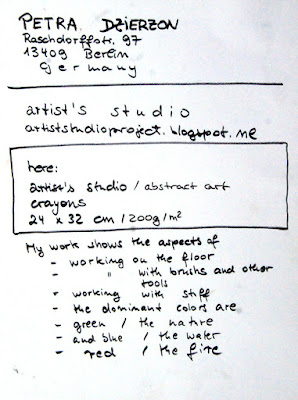 PETRA DZIERZON
Raschdorffstr. 97
13409 Berlin
Germany
artist's studio
artiststudioproject.blogspot.me
here:
artist's studio / abstract art
crayons
24 x 32 cm / 200g/m²
My work shows the aspects of
- working on the floor
- " with brushs and other
tools
- working with stiff
- the dominant colors are
- green / the nature
- and blue / the water
- red / the fire